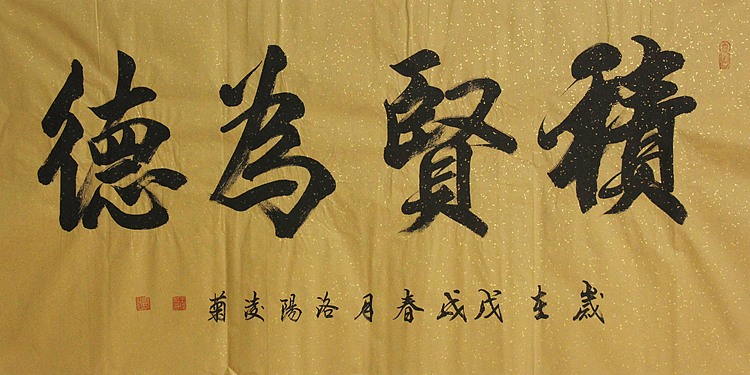 積賢為德
歲在戊戌春月洛陽凌菊